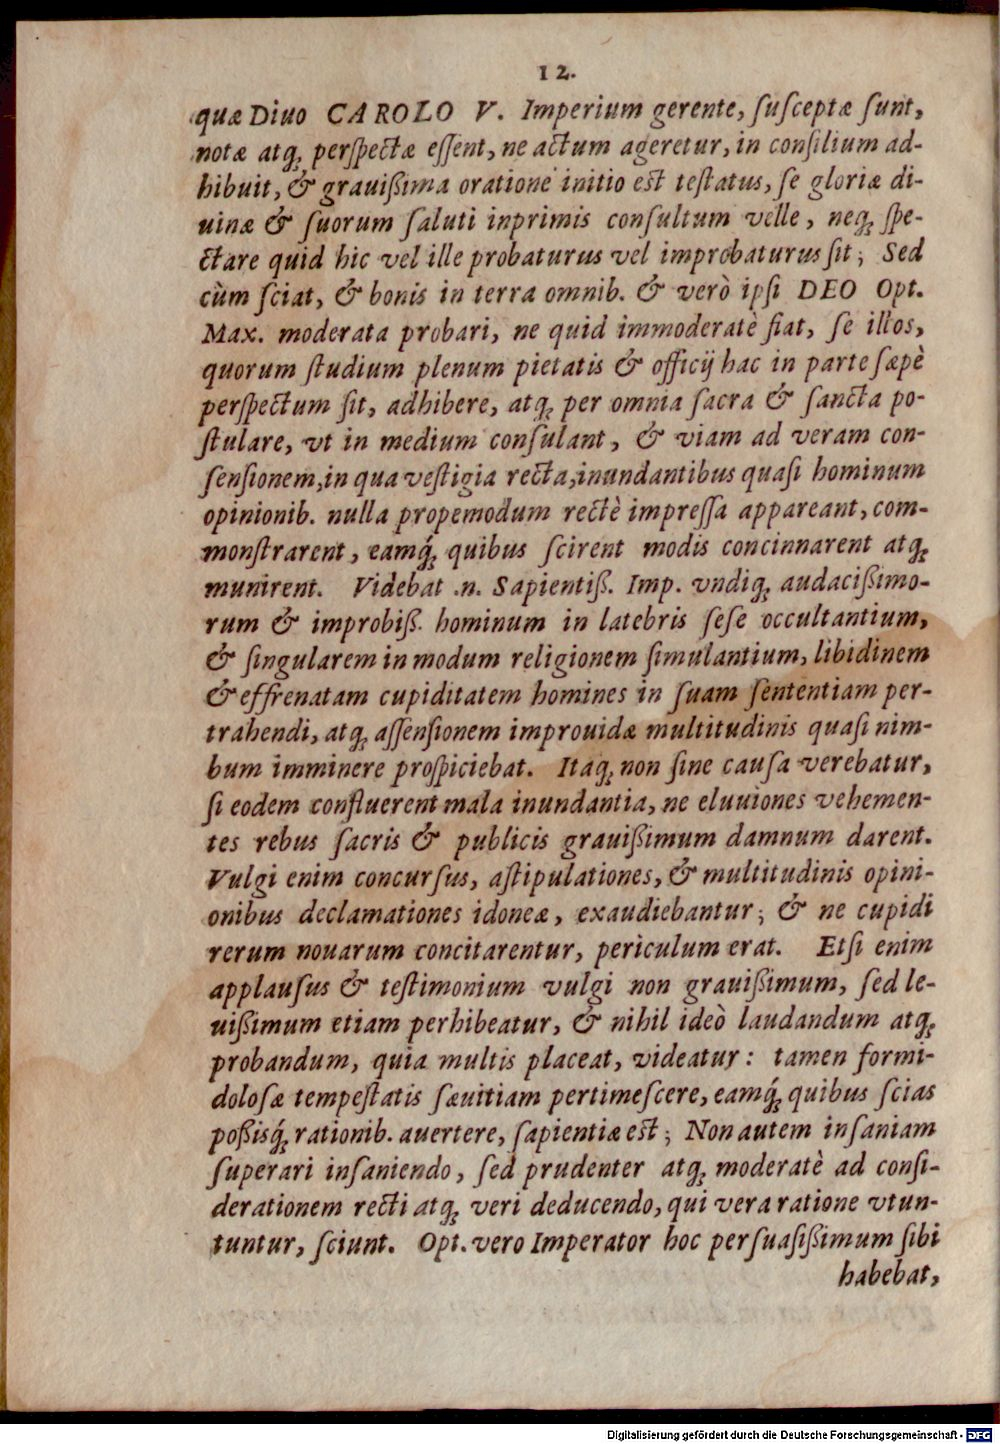 12.
quæ Diuo CAROLO V. Imperium gerente, ſuſceptæ ſunt,
notæ atq́; perſpectæ eſſent, ne actum ageretur, in conſilium ad-
hibuit, & grauißima oratione initio est teſtatus, ſe gloriæ di-
uinæ & ſuorum ſaluti inprimis conſultum velle, neq; ſpe-
ctare quid hic vel ille probaturus vel improbaturus ſit; Sed
cùm ſciat, & bonis in terra omnib. & verò ipſi DEO Opt.
Max. moderata probari, ne quid immoderatè fiat, ſe illos,
quorum ſtudium plenum pietatis & officij hac in parte ſæpè
perſpectum ſit, adhibere, atq; per omnia ſacra & ſancta po-
ſtulare, vt in medium conſulant, & viam ad veram con-
ſenſionem, in qua veſtigia recta, inundantibus quaſi hominum
opinionib. nulla propemodum rectè impreſſa appareant, com-
monſtrarent, eamq́; quibus ſcirent modis concinnarent atq;
munirent. Videbat .n. Sapientiß. Imp. vndiq; audacißimo-
rum & improbiß. hominum in latebris ſeſe occultantium,
& ſingularem in modum religionem ſimulantium, libidinem
& effrenatam cupiditatem homines in ſuam ſententiam per-
trahendi, atq; aſſenſionem improuidæ multitudinis quaſi nim-
bum imminere proſpiciebat. Itaq; non ſine cauſa verebatur,
ſi eodem confluerent mala inundantia, ne eluuiones vehemen-
tes rebus ſacris & publicis grauißimum damnum darent.
Vulgi enim concurſus, aſtipulationes, & multitudinis opini-
onibus declamationes idoneæ, exaudiebantur; & ne cupidi
rerum nouarum concitarentur, periculum erat. Etſi enim
applauſus & teſtimonium vulgi non grauißimum, ſed le-
uißimum etiam perhibeatur, & nihil ideò laudandum atq;
probandum, quia multis placeat, videatur: tamen formi-
doloſæ tempeſtatis ſæuitiam pertimeſcere, eamq́; quibus ſcias
poßisq́; rationib. auertere, ſapientiæ est; Non autem inſaniam
ſuperari inſaniendo, ſed prudenter atq; moderatè ad conſi-
derationem recti atq; veri deducendo, qui vera ratione vtun-
tuntur, ſciunt. Opt. vero Imperator hoc perſuaſißimum ſibi
habebat,
Digitalisierung gefördert durch die Deutsche Forschungsgemeinschaft - DFG